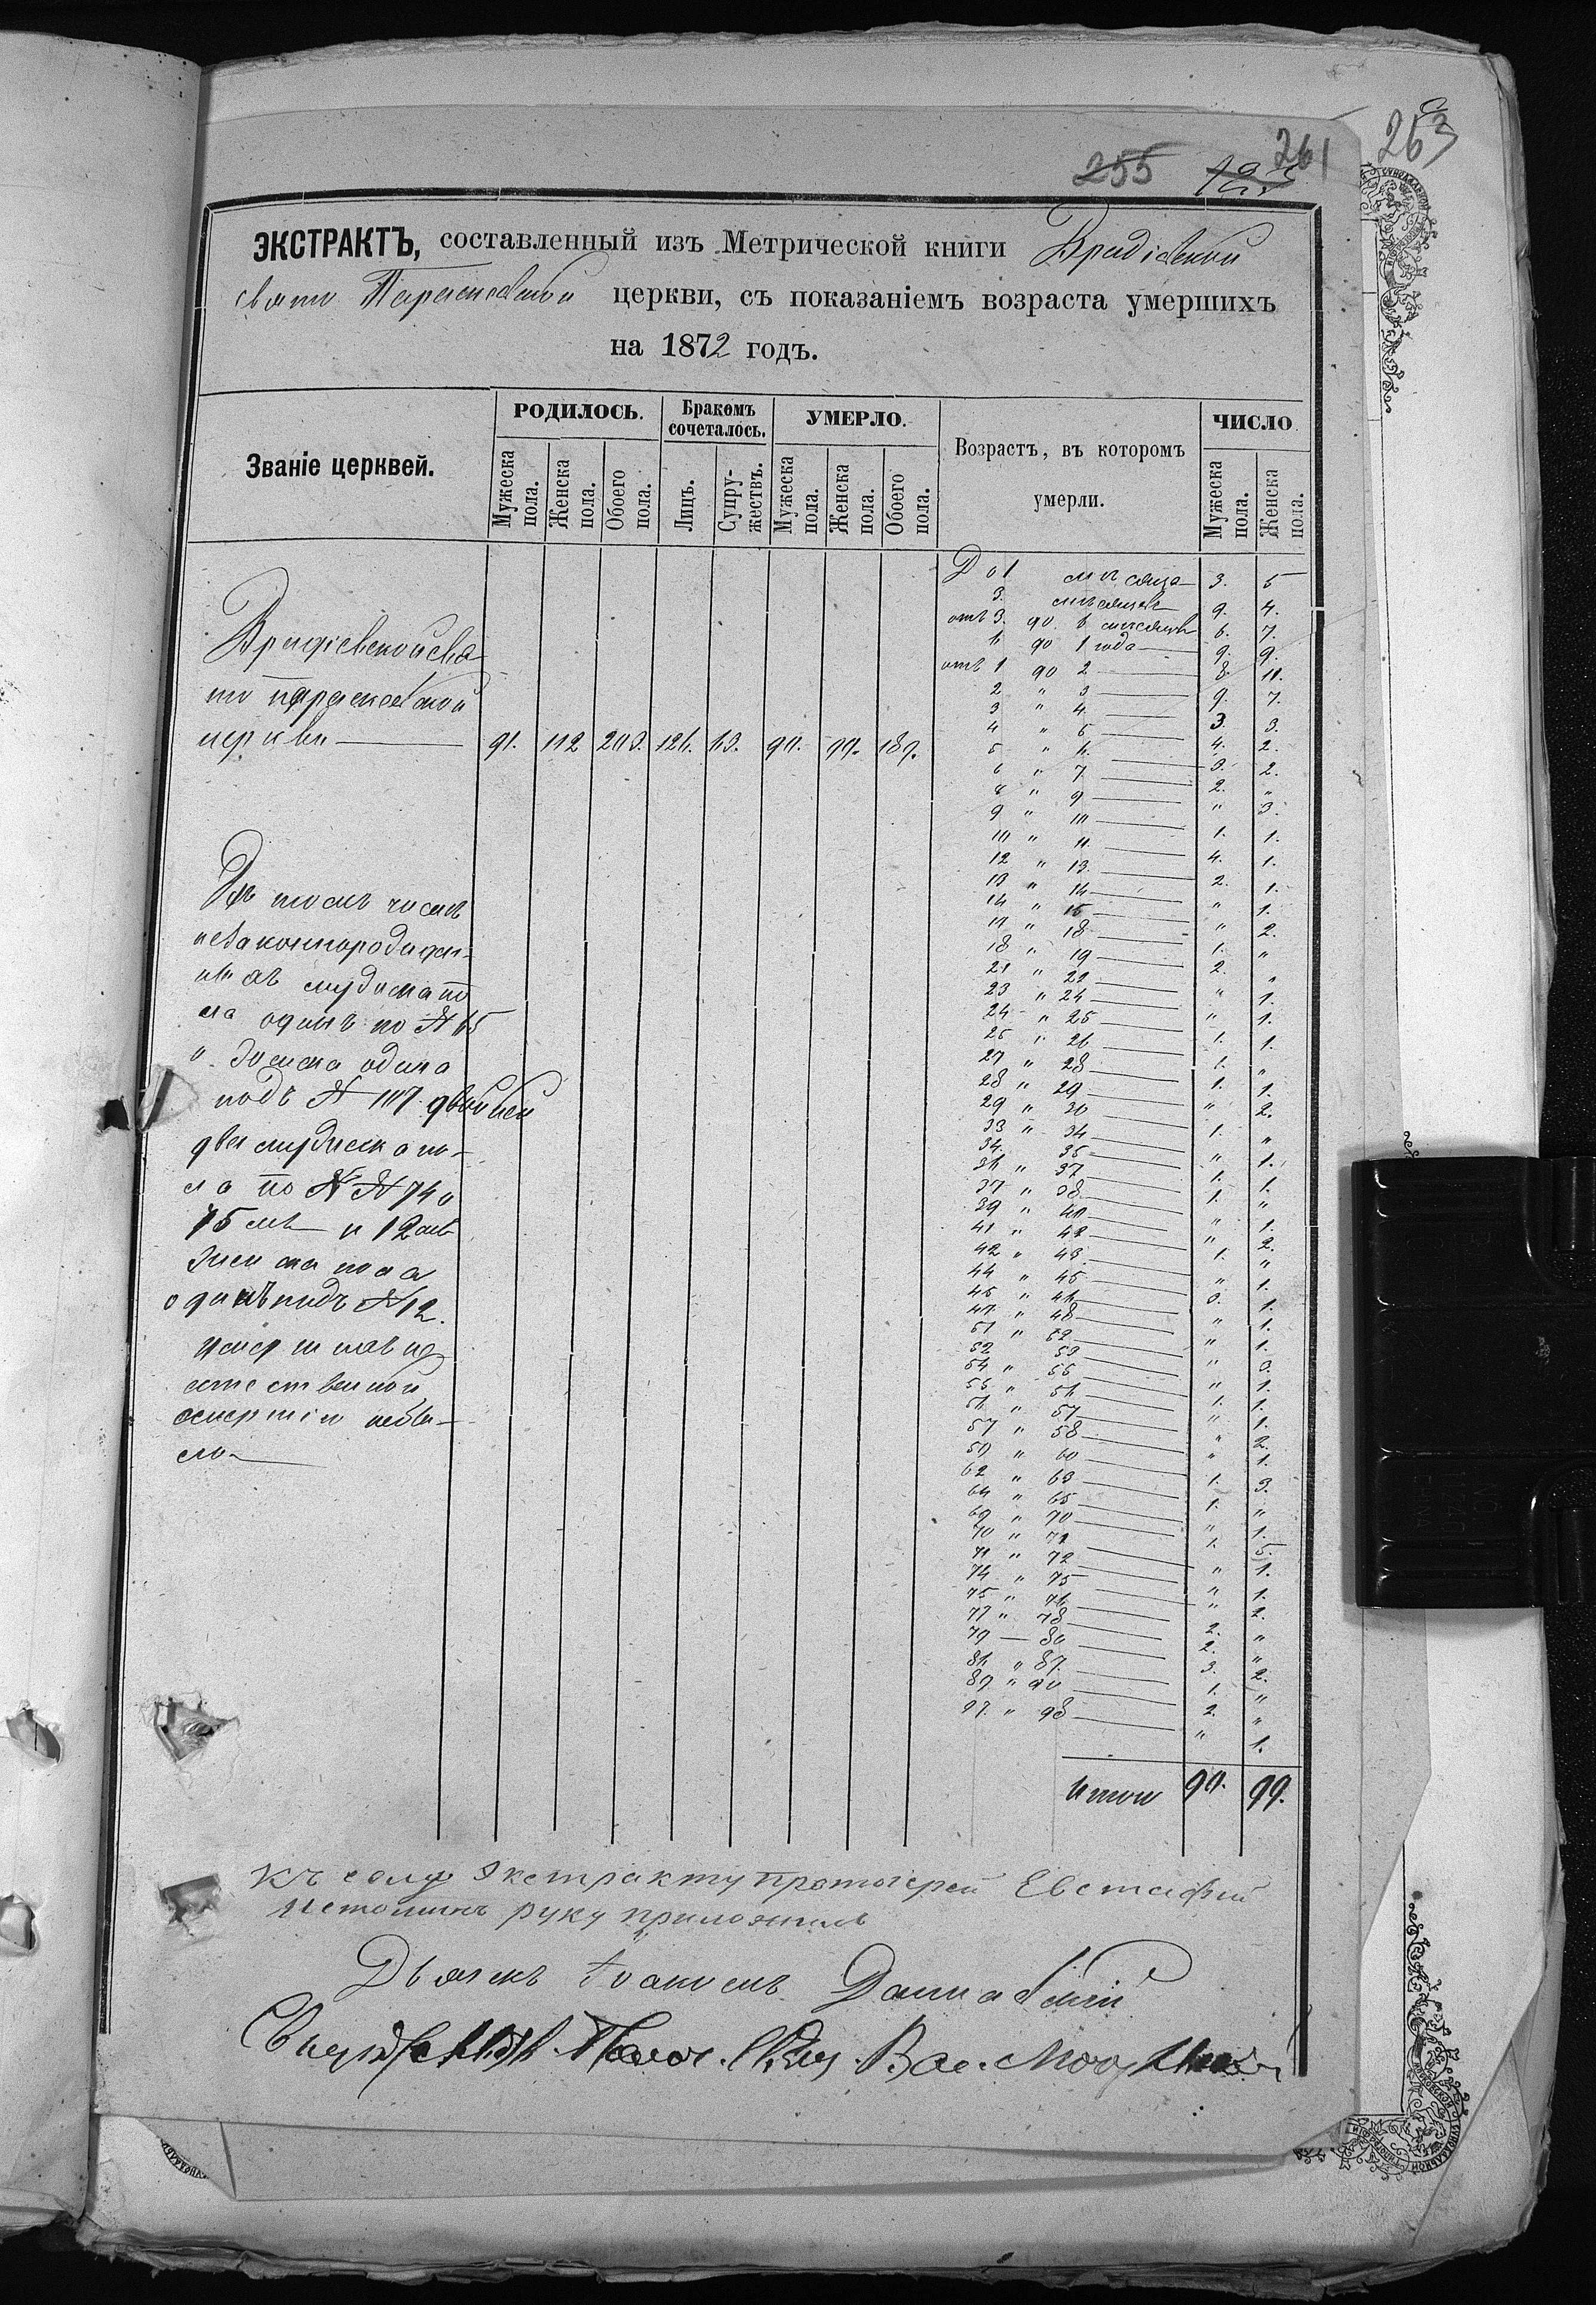 263
261
255
ЭКСТРАКТЪ, составленный изъ Метрической книги Вридіевской
Свято Параскевской церкви, съ показаніемъ возраста умершихъ
на 1872 годъ.
Званіе церквей.
РОДИЛОСЬ.
Мужеска пола.
Женска пола.
Обоего пола.
Бракомъ сочеталось.
Лицъ.
Супружествъ.
УМЕРЛО.
Мужеска пола.
Женска пола.
Обоего пола.
Возрастъ, въ которомъ умерли.
ЧИСЛО
Мужеска пола.
Женска пола.
Вридіевской свя-
то параскевской
церкви — 91. 112 203. 126. 63. 90. 99. 189.
Въ томъ числѣ
незаконнорожден-
ныхъ
одинъ по № 65
и одна
подъ № 107. двойней
два мужеска по-
ла по №№ 74 и
75 мъ и 12 мъ
женска пола
одинъ подъ № 12.
Умершихъ не
естественной
смертію небы-
ло —
До 1 мѣсяца — 3. 5
3. мѣсяцевъ — 9. 4.
отъ 3. до 6 мѣсяцевъ 6. 7.
6 до 1 года — 9. 9.
отъ 1 до 2 — 8. 11.
2 " 3 — 9. 7.
3 " 4 — 3. 3.
4 " 5 — 4. 2.
5 " 6 — 3. 2.
6 " 7 — 2. "
8 " 9 — " 3.
9 " 10 — 1. 1.
10 " 11 — 4. 1.
12 " 13 — 2. 1.
13 " 14 — " 1.
14 " 15 — " 2.
18 — 1. "
18 " 19 — 2. "
21 " 22 — " 1.
23 " 24 — " 1.
24 " 25 — 1. 1.
25 " 26 — 1. "
27 " 28 — 1. 1.
28 " 29 — " 2.
29 " 30 — 1. "
33 " 34 — " 1.
34 35 — 1. 1.
36 " 37 — 1. "
37 " 38 — " 1.
39 " 40 — " 2.
41 " 42 — 1. "
42 " 43 — " 1.
44 " 45 — 3. 1.
45 " 46 — " 1.
47 " 48 — " 1.
51 " 52 — " 3.
52 53 — " 1.
54 " 55 — 1. 1.
55 " 56 — " 1.
56 " 57 — " 2.
57 " 58 — " 1.
59 " 60 — 1. 3.
62 " 63 — 1. "
64 " 65 — " 1.
69 " 70 — 1. 5.
70 " 71 — " 1.
71 " 72 — " 1.
74 " 75 — " 2.
75 " 76 — 2. "
77 " 78 — 2. "
79 — 80 — 3. 2.
86 " 87 — 1. "
89 " 90 — 2. "
97. " 98 — " 1.
Итого 90. 99.
Къ сему Экстракту протоіерей Евстафій
Истоминъ руку приложилъ
Дьячекъ Іоакимъ